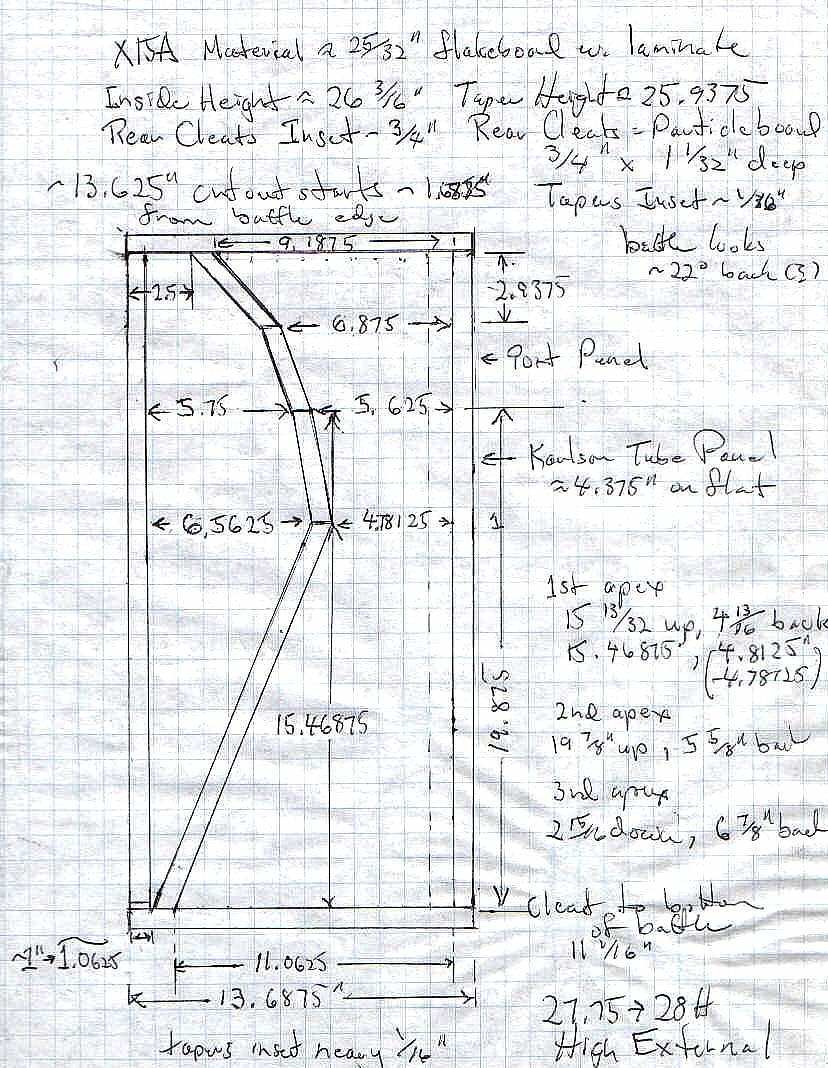 X15A Material ≈ 25/32" flakeboard w. laminate
Inside Height ≈ 26 3/16" Taper Height ≈ 25.9375
Rear Cleats Inset ~ 3/4" Rear Cleats = Particleboard
3/4" x 1 1/32" deep
~ 13.625" cutout starts ~
from baffle edge
Tapers Inset ~
baffle looks
~ 22° back (3)
9.1875
2.5
2.9375
6.875
← Port Panel
5.75
5.625
← Karlson Tube Panel
≈ 4.375" on flat
6.5625
4.78125
1
1st apex
15 13/32 up, 4 13/16 back
15.46875", (4.8125"
4.78125)
2nd apex
19 7/8" up, 5 5/8" back
15.46875
19.875
3rd apex
2 15/16 down, 6 7/8" back
Cleat to bottom
of baffle
11 1/16"
~1" → 1.0625
11.0625
13.6875"
27.75 → 28 H
High External
tapers inset heavy 1/16"